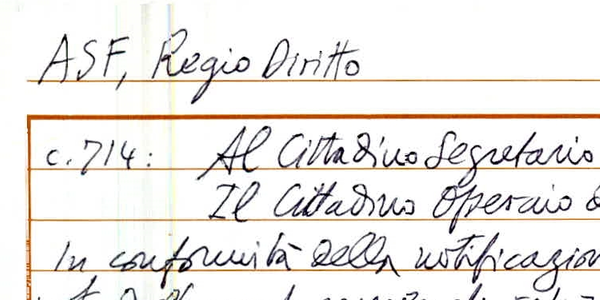 ASF, Regio Diritto
c. 714: Al Cittadino Segretario
Il Cittadino Operaio
In conformità della notificazion